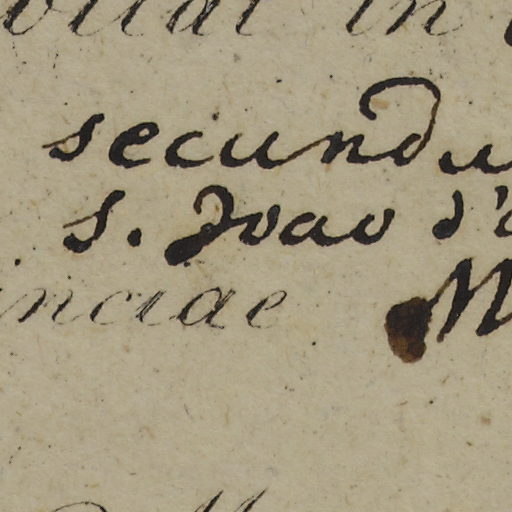 in
secundu
s. Joao d'
inciae M